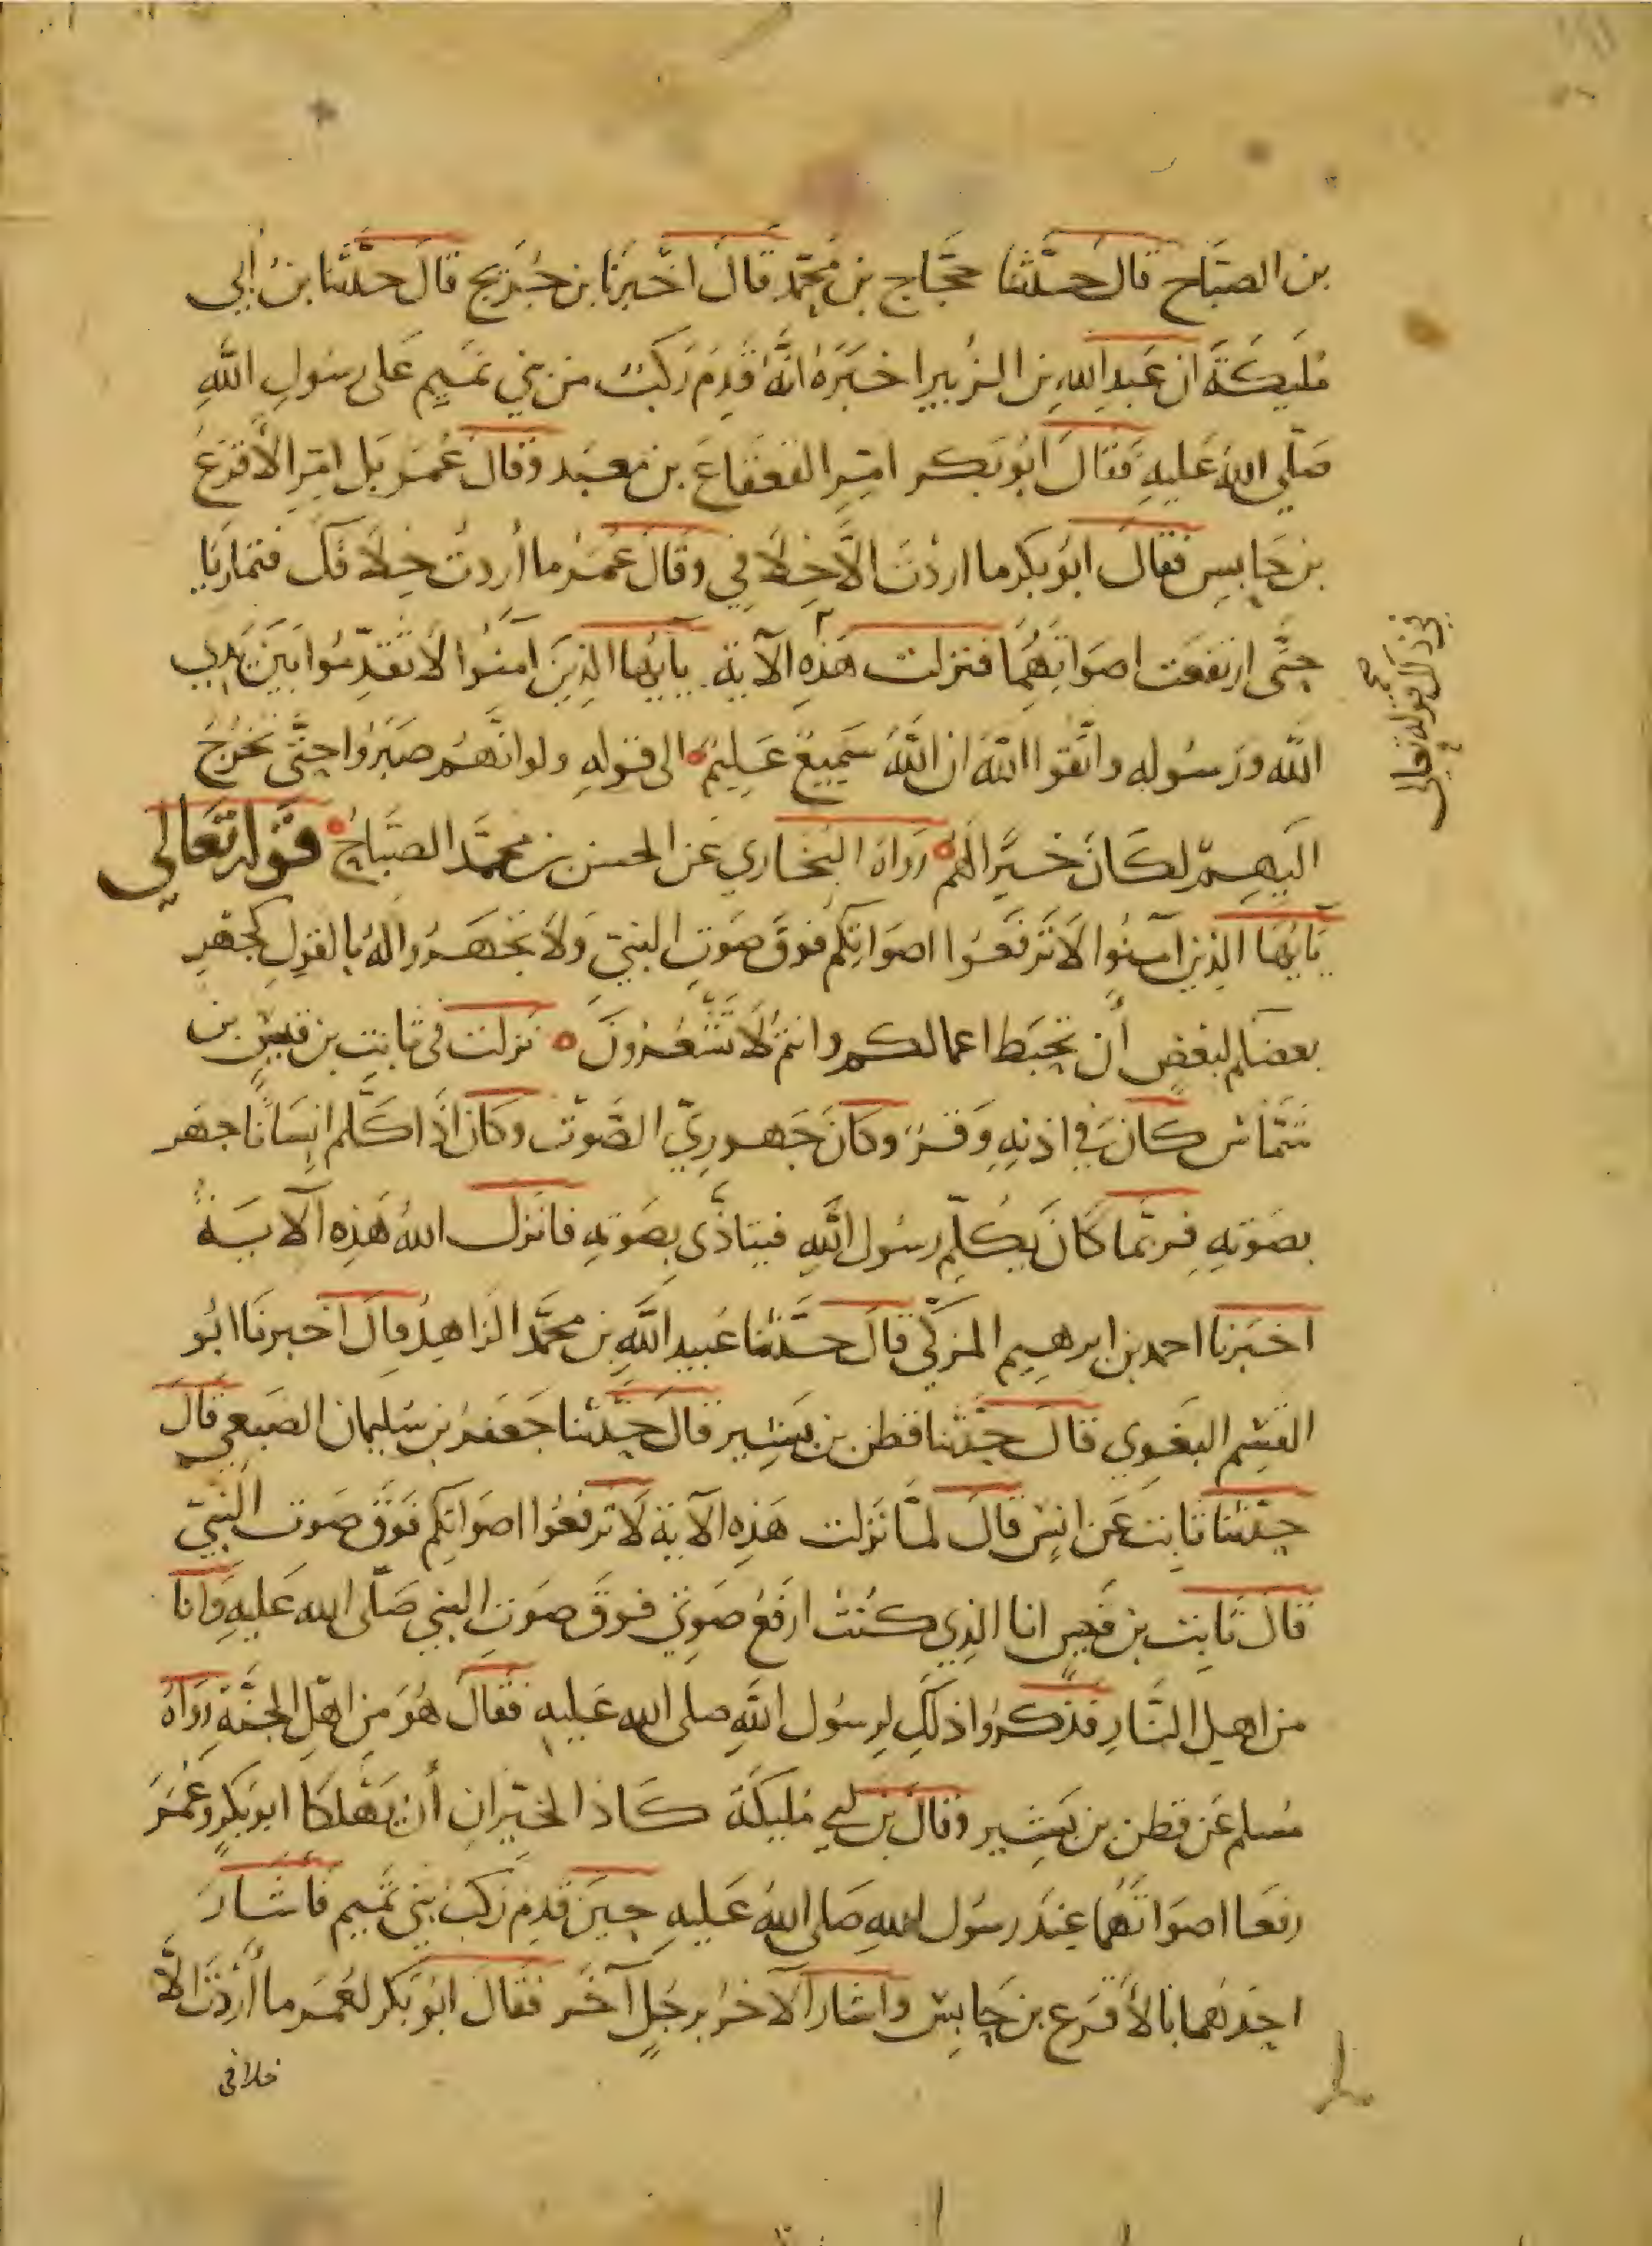 بن الصبّاح قال حدّثنا حجّاج بن محمّد قال اخبرنا بن جُرَيج قال حدّثنا بن أبي
مُليكة ان عَبد الله بن الزُبير اخبَرَهُ انّهُ قَدِمَ رَكبٌ من بني تميم عَلى رسُولِ اللهِ
صَلّى اللهُ عَليهِ فقالَ ابُو بَكر امّرِ القعقاعَ بن معبَد وقالَ عُمَر بَل امّرِ الأقرعَ
بن حَابسٍ فقال ابُو بكر ما اردْتَ الّا خِلافي وقالَ عُمَرُ ما أردتُ خِلافكَ فتمارَيَا
حتَّى ارتفعَت اصوَاتهُمَا فنزلت هَذِهِ الآية يآيُّها الذِينَ آمَنُوا لَا تُقَدِّمُوا بَينَ يَدَي
في ذلك قوله تعالى صح
الله وَرَسُولِهِ واتَّقوا اللهَ ان اللهَ سَمِيعٌ عَلِيمٌ الى قولِهِ ولو انَّهُم صبَرُوا حتَّى تخرُجَ
اليهِم لكَانَ خيرًا لهُم رَوَاهُ البُخاري عَن الحسن بن محمَّد الصبّاح قوله تعَالى
يَايُّهَا الذين آمنُوا لَا تَرفَعُوا اصوَاتكُم فوقَ صَوتِ النبيّ وَلَا تجهَرُوا لَهُ بالقولِ كجَهرِ
بعضكُم لبَعْضٍ أن تحبَط اعمالكم وانتم لَا تَشعُرُونَ نزلت في ثابتِ بن قيسِ بن
شمّاس كانَ في اذنِهِ وَقرٌ وكانَ جَهوريّ الصَّوت وكان اذَا كلّم انسَانًا جهَر
بصَوتِهِ فربّما كَانَ يُكلّم رسُول اللهِ فيتاذّى بصَوتِهِ فانزل اللهُ هَذِهِ الآيَةَ
اخبَرنا احمد بن ابرهيم المزكّي قالَ حدَّثنا عُبيد اللَّهِ بن محمَّد الزاهِدُ قالَ اخبرنَا ابُو
القسِم البغَوي قالَ حدّثنا قطن بن بَشِير قالَ حدّثنا جَعفرُ بن سُليمان الضبَعي قالَ
حدّثنا ثابت عَن انسٍ قالَ لمَّا نَزلت هَذِهِ الآية لَا ترفعُوا اصوَاتكُم فَوقَ صَوت النبيّ
قالَ ثابت بن قيسٍ انا الذِي كنتُ ارفَعُ صَوتي فوقَ صَوتِ النبي صَلّى الله عَليهِ وَانا
من اهلِ النَّارِ فذكرُوا ذلكَ لرسُول اللَّهِ صلى الله عَليهِ فقالَ هُوَ مِن اهْلِ الجنَّةِ رَوَاهُ
مُسلم عَن قطن بن بَشِير وقالَ بن ابي مُليكَة كَادَ الخيّرانِ أن يَهْلكَا ابو بَكرٍ وعُمَرَ
رفعَا اصوَاتَهُمَا عِندَ رسُول اللهِ صَلى اللهُ عَليهِ حِينَ قدِمَ رَكبُ بَني تميم فأشَارَ
احدُهما بالأقرع بن حَابسٍ واشارَ الآخرُ برجُلٍ آخَر فقالَ ابُو بَكر لعُمَر ما أرَدْتَ الّا
خلافي